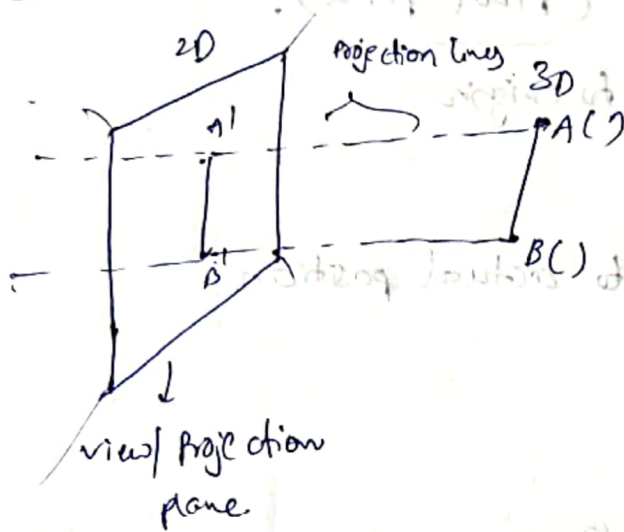 2D
Projection lines
3D
A'
A( )
B'
B( )
view/ Projection
plane.